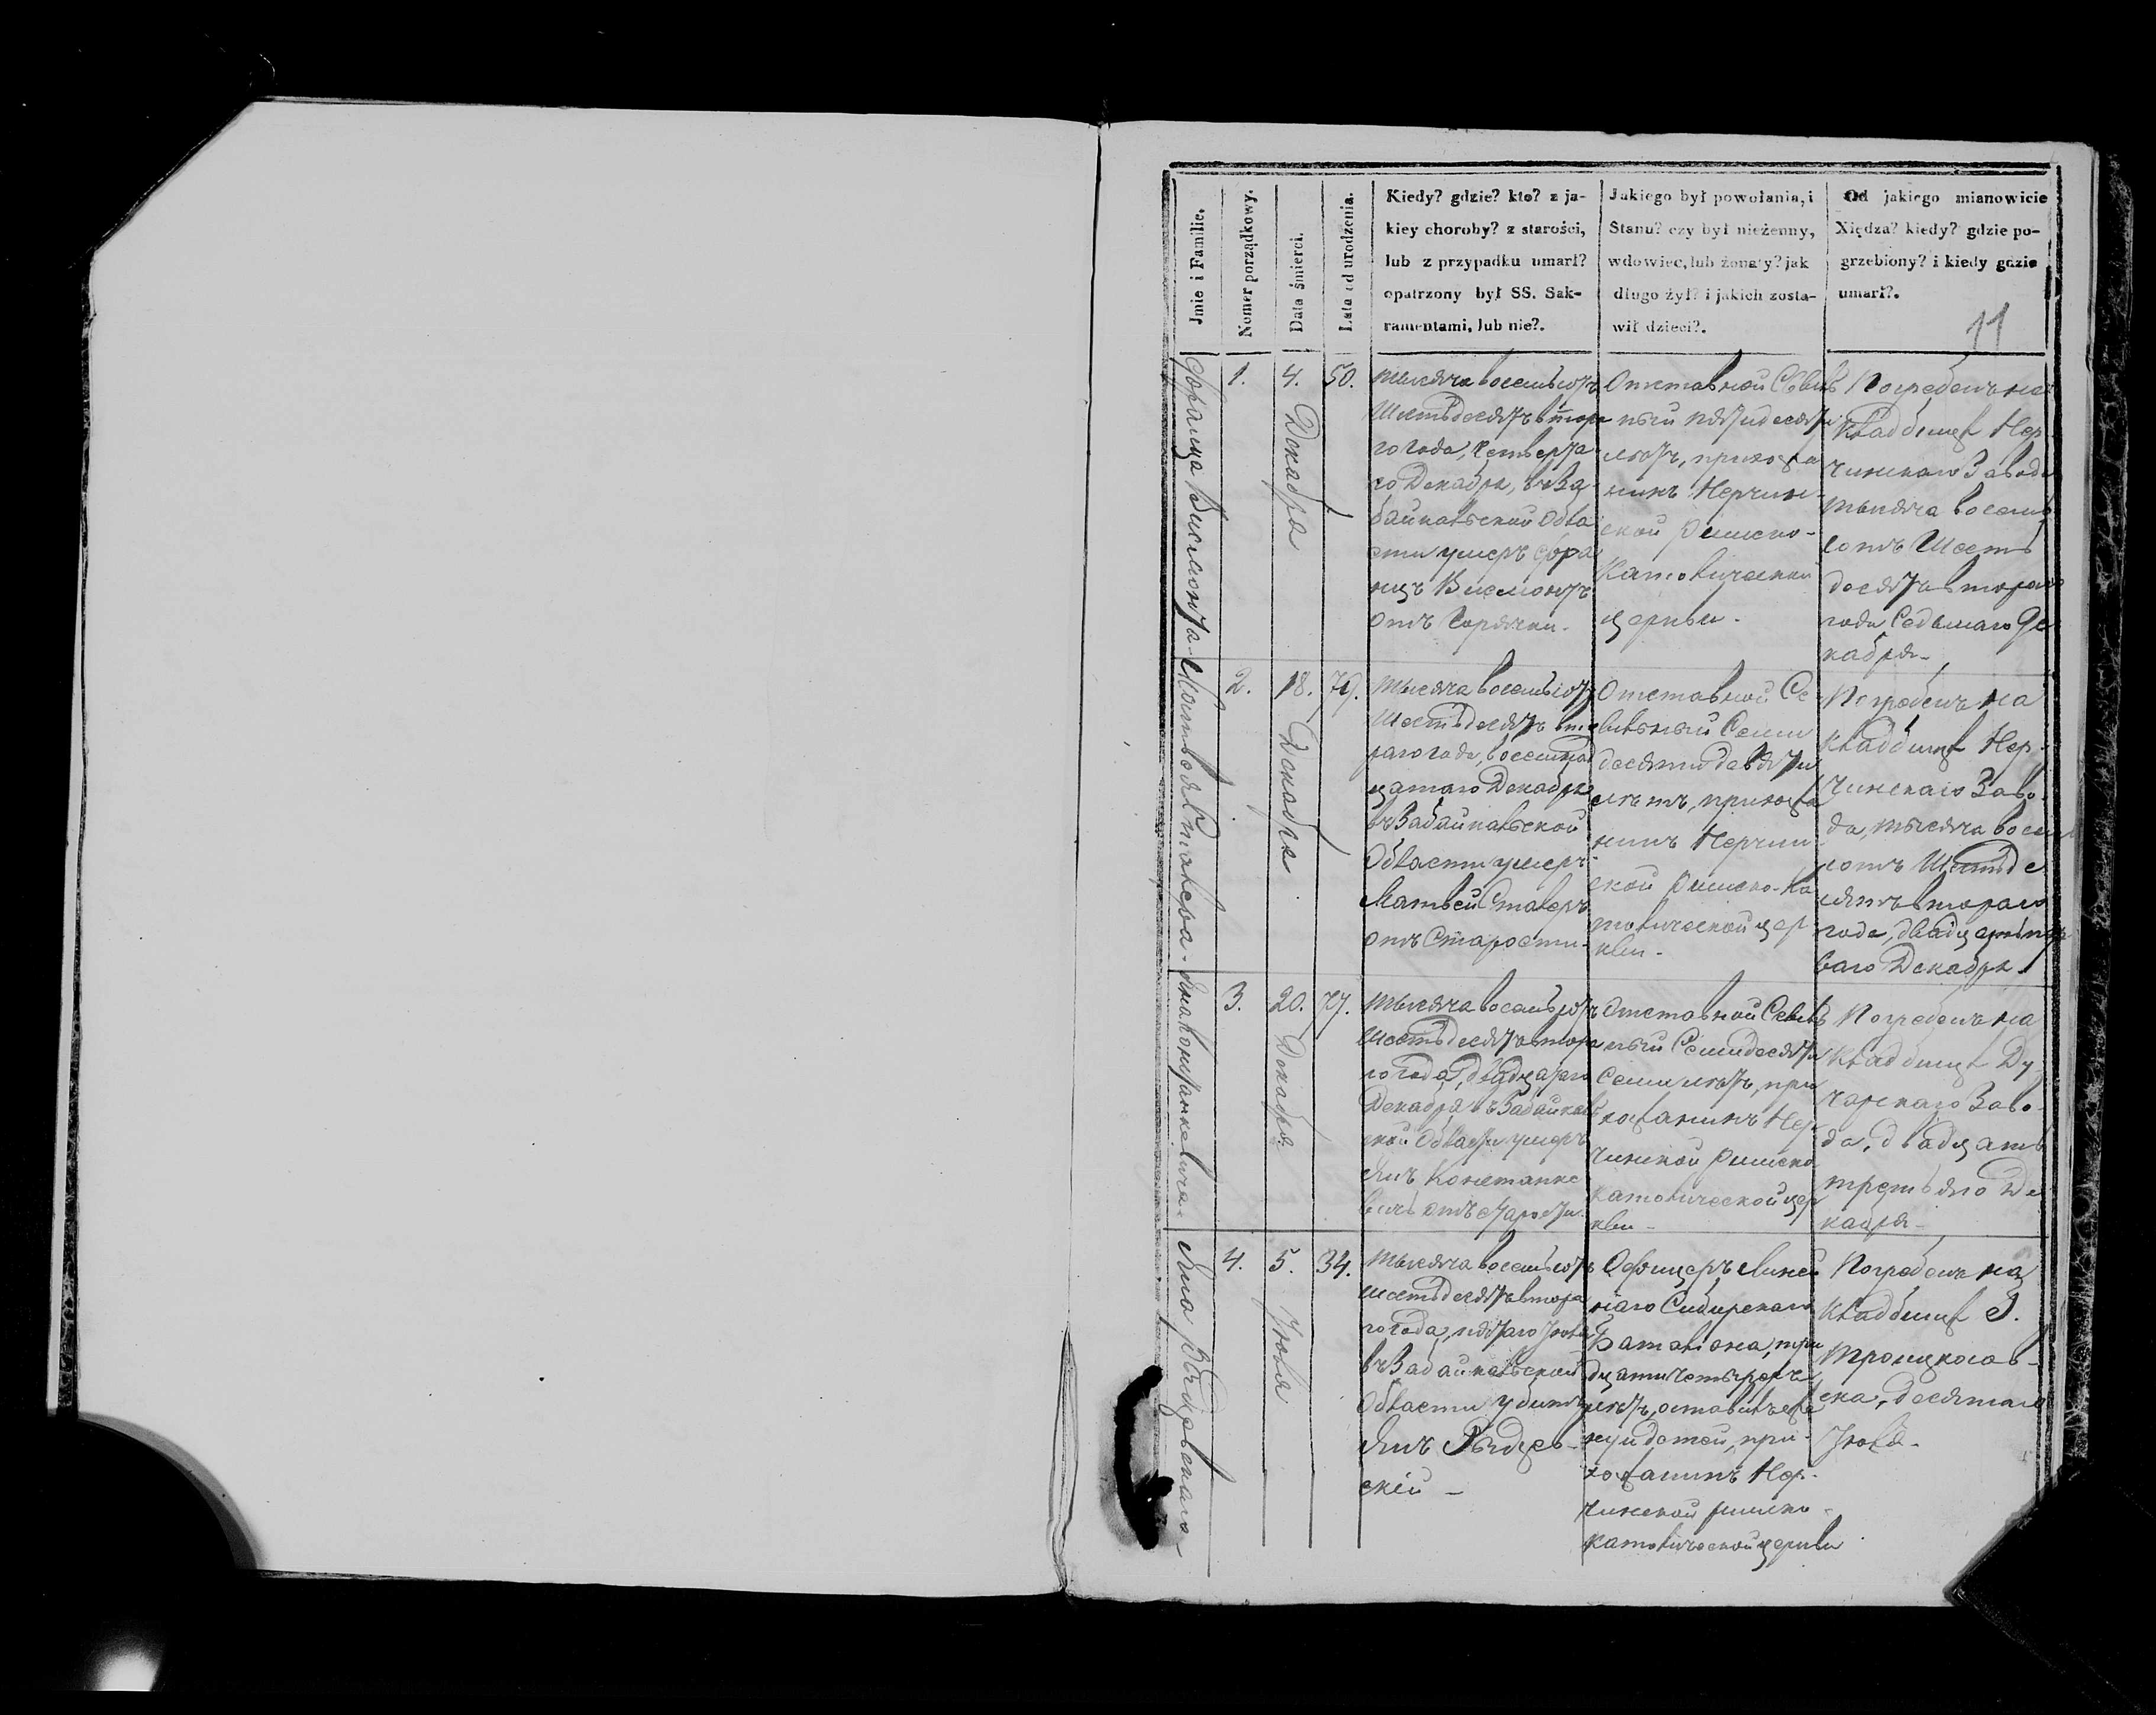 Jmie i Familie.
Nomer porządkowy.
Data śmierci.
Lata od urodzenia.
Kiedy? gdzie? kto? z ja-
kiey choroby? z starości,
lub z przypadku umarł?
opatrzony był SS. Sak-
ramentami, lub nie?.
Jakiego był powołania, i
Stanu? czy był nieżenny,
wdowiec, lub żonaty? jak
długo żył? i jakich zosta-
wił dzieci?.
Od jakiego mianowicie
Xiędza? kiedy? gdzie po-
grzebiony? i kiedy gdzie
umarł?.
11
Франца Висмонта
1.
4. Декабря
50.
Тысяча восемьсотъ
Шестьдесятъ втора
го года, Четверта
го Декабря, въ За
байкальской Обла
сти умеръ Фра
нцъ Висмонтъ
отъ Горячки.
Отставной Сыль
ный пятидесяти
летъ, прихожа
нинъ Нерчин
ской Римско-
Католической
церкви.
Погребенъ на
кладбищѣ Нер
чинскаго Завода
тысяча восемь
сотъ Шесть
десятъ втораго
года Седьмаго Де
кабря
Матвея Сталера
2.
18. Декабря
79.
Тысяча восемьсотъ
Шестьдесятъ вто
раго года, восемнад
цатаго Декабря
въ Забайкальской
Области умеръ
Матвей Сталеръ
отъ Старости.
Отставной Сс
ыльный Семи
десяти девяти
летъ, прихожа
нинъ Нерчин
ской Римско-Ка
толической цер
кви.
Погребенъ на
кладбищѣ Нер-
чинскаго Заво
да, тысяча восемь
сотъ Шестьде
сятъ втораго
года, двадцать пер
ваго Декабря.
3.
20. Декабря
77.
Тысяча восемьсотъ
Шестьдесятъ втора
го года, двадцатаго
Декабря въ Забайкаль
ской Области умеръ
Янъ Констанке
вичь отъ старости.
Отставной Сыль
ный Семидесяти
Семи летъ, при
хожанинъ Нер
чинской Римско
Католической цер
кви
Погребенъ на
кладбищѣ Ду
чарскаго Заво-
да, двадцать
третьяго Де
кабря
Яна Рындзевскаго
4.
5. Іюля
34.
Тысяча восемьсотъ
шестьдесятъ втора
го года, пятаго Іюля
въ Забайкальской
Области убитъ
Янъ Рындзев-
скій
Офицеръ Линей
наго Сибирскаго
Баталіона, три
дцати четырехъ
летъ, оставилъ
детей, при-
хожанинъ Нер-
чинской римско-
католической церкви
Погребенъ на
кладбищѣ Г.
Троицкосав-
ска, десятаго
Іюля